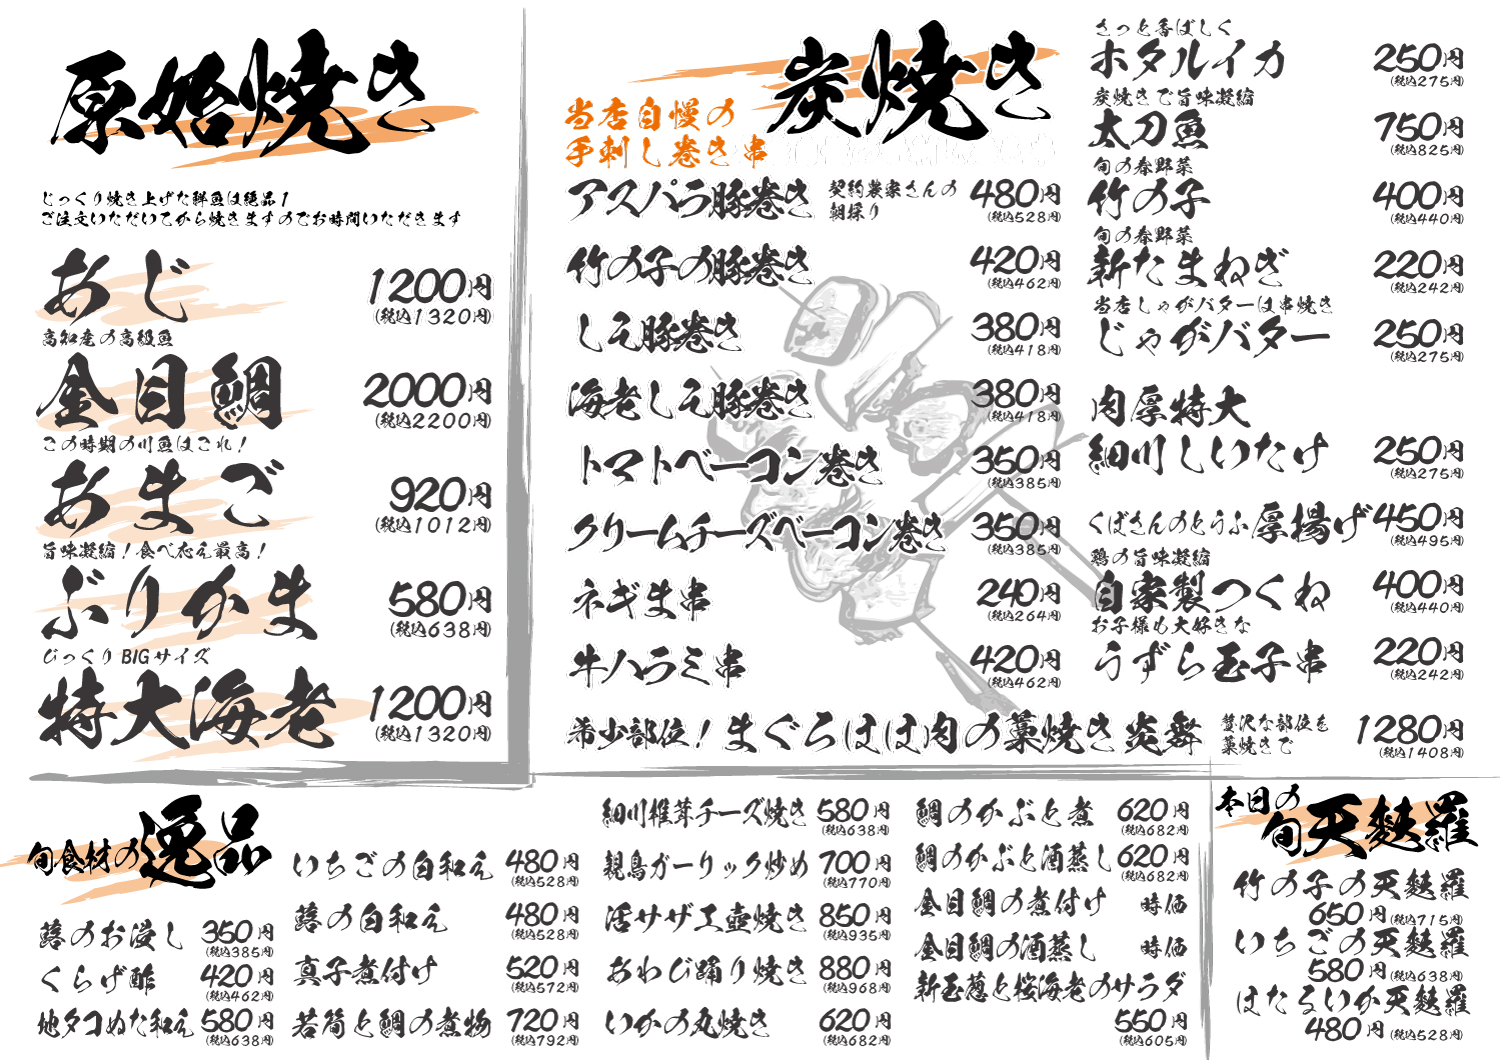 原始焼き
じっくり焼き上げた鮮魚は絶品！
ご注文いただいてから焼きますのでお時間いただきます
あじ 1200円
(税込1320円)
高知産の高級魚
金目鯛 2000円
(税込2200円)
この時期の川魚はこれ！
あまご 920円
(税込1012円)
旨味凝縮！食べ応え最高！
ぶりかま 580円
(税込638円)
びっくりBIGサイズ
特大海老 1200円
(税込1320円)
炭焼き
当店自慢の
手刺し巻き串
アスパラ豚巻き 契約農家さんの朝採り 480円
(税込528円)
竹の子の豚巻き 420円
(税込462円)
しそ豚巻き 380円
(税込418円)
海老しそ豚巻き 380円
(税込418円)
トマトベーコン巻き 350円
(税込385円)
クリームチーズベーコン巻き 350円
(税込385円)
ネギま串 240円
(税込264円)
牛ハラミ串 420円
(税込462円)
さっと香ばしく
ホタルイカ 250円
(税込275円)
炭焼きで旨味凝縮
太刀魚 750円
(税込825円)
旬の春野菜
竹の子 400円
(税込440円)
旬の春野菜
新たまねぎ 220円
(税込242円)
当店じゃがバターは串焼き
じゃがバター 250円
(税込275円)
肉厚特大
細川しいたけ 250円
(税込275円)
くぼさんのとうふ厚揚げ 450円
(税込495円)
鶏の旨味凝縮
自家製つくね 400円
(税込440円)
お子様も大好きな
うずら玉子串 220円
(税込242円)
希少部位！まぐろほほ肉の藁焼き炎舞 贅沢な部位を藁焼きで 1280円
(税込1408円)
旬食材の逸品
蕗のお浸し 350円
(税込385円)
くらげ酢 420円
(税込462円)
地タコぬた和え 580円
(税込638円)
いちごの白和え 480円
(税込528円)
蕗の白和え 480円
(税込528円)
真子煮付け 520円
(税込572円)
若筍と鯛の煮物 720円
(税込792円)
細川椎茸チーズ焼き 580円
(税込638円)
親鳥ガーリック炒め 700円
(税込770円)
活サザエ壺焼き 850円
(税込935円)
あわび踊り焼き 880円
(税込968円)
いかの丸焼き 620円
(税込682円)
鯛のかぶと煮 620円
(税込682円)
鯛のかぶと酒蒸し 620円
(税込682円)
金目鯛の煮付け 時価
金目鯛の酒蒸し 時価
新玉葱と桜海老のサラダ
550円
(税込605円)
本日の
旬天麩羅
竹の子の天麩羅
650円(税込715円)
いちごの天麩羅
580円(税込638円)
ほたるいか天麩羅
480円(税込528円)